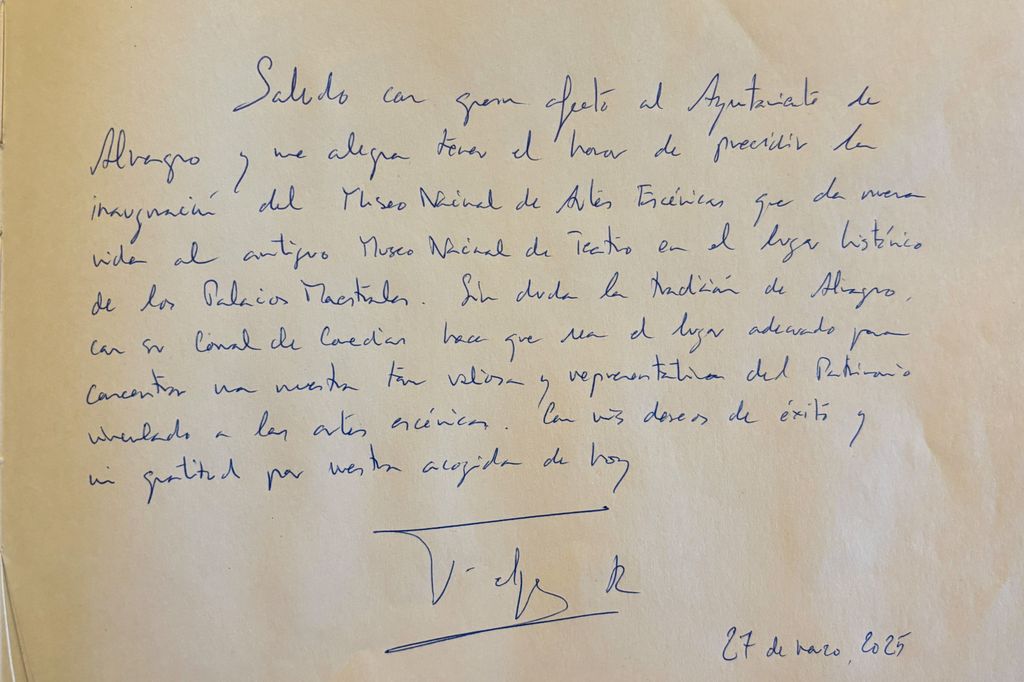 Saludo con gran afecto al Ayuntamiento de
Almagro y me alegra tener el honor de presidir la
inauguración del Museo Nacional de Artes Escénicas que da nueva
vida al antiguo Museo Nacional de Teatro en el lugar histórico
de los Palacios Maestrales. Sin duda la tradición de Almagro,
con su Corral de Comedias hace que sea el lugar adecuado para
concentrar una muestra tan valiosa y representativa del Patrimonio
vinculado a las artes escénicas. Con mis deseos de éxito y
mi gratitud por vuestra acogida de hoy
Felipe R
27 de marzo, 2025